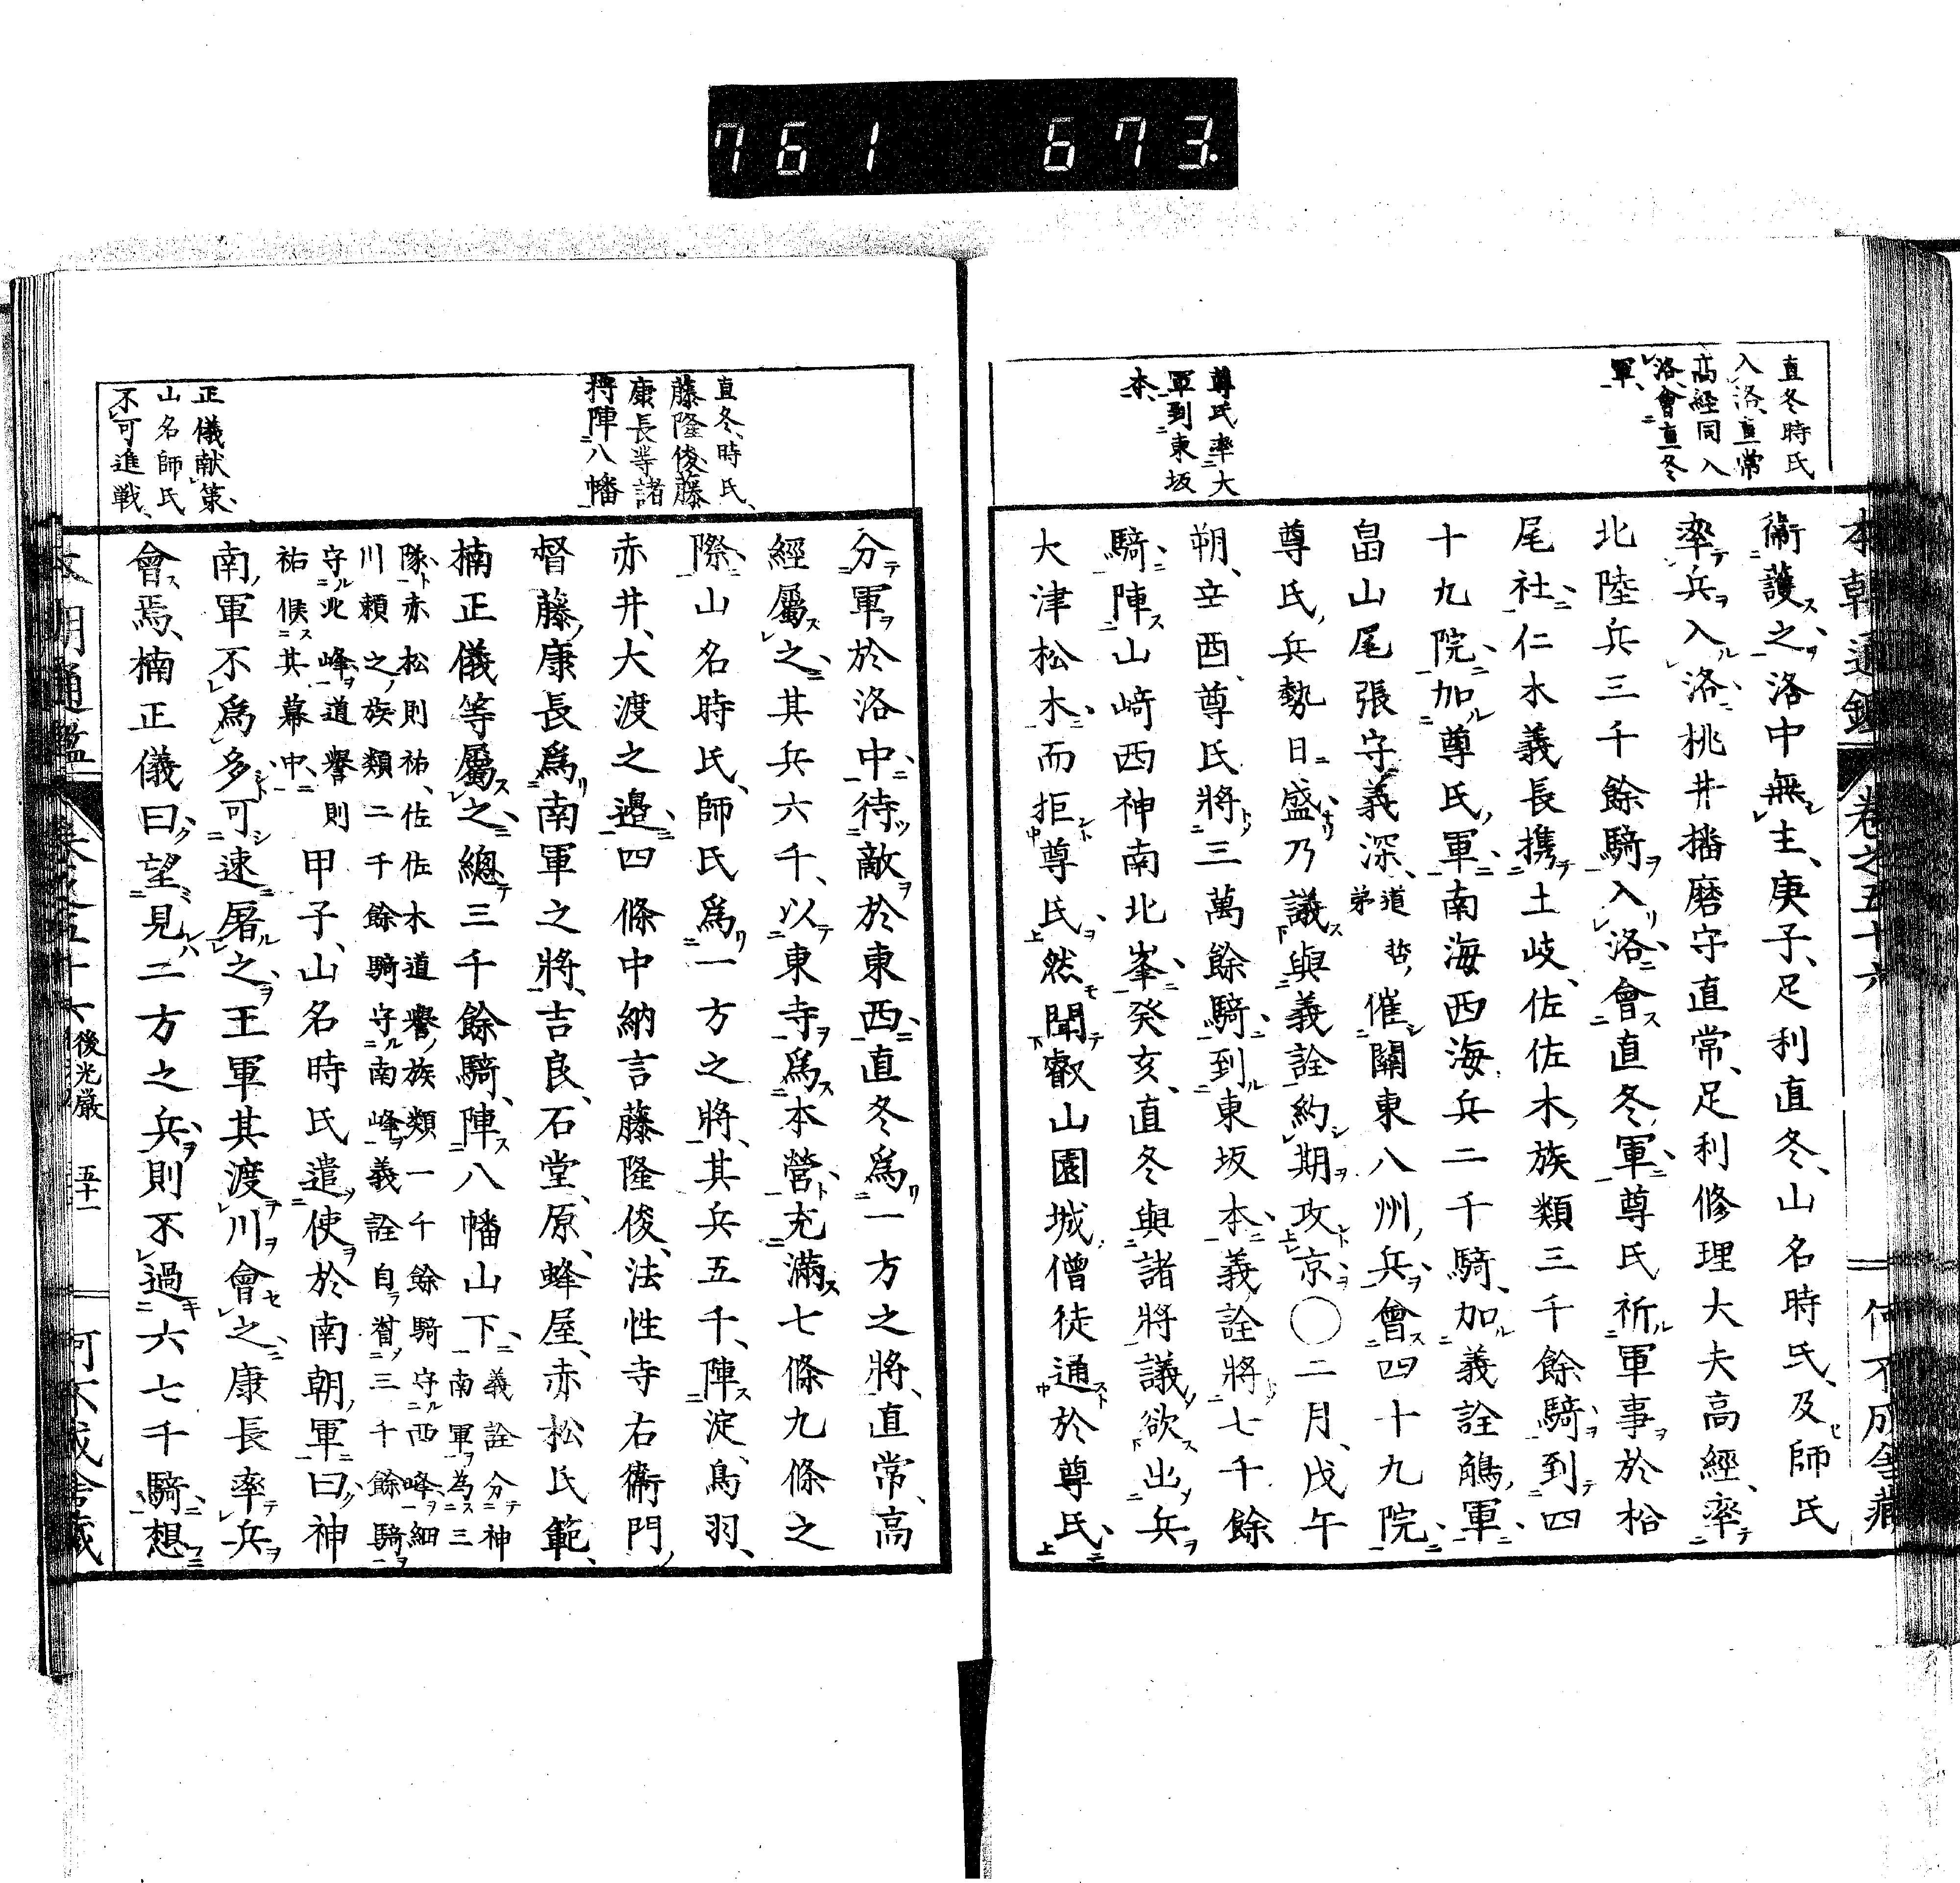 761 673.
本朝通鑑 卷之五十六 何不成舍藏
直冬時氏
入洛、直常
高経同入
洛、會直冬
軍、
尊氏率大
軍到東坂
本、
衞護之、洛中無主、庚子、足利直冬、山名時氏、及師氏
率兵入洛、桃井播磨守直常、足利修理大夫高經、率
北陸兵三千餘騎入洛、會直冬軍、尊氏祈軍事於松
尾社、仁木義長携土岐、佐佐木族類三千餘騎到四
十九院、加尊氏軍、南海西海兵二千騎、加義詮軍、
畠山尾張守義深、道誓弟、催關東八州兵、會四十九院、
尊氏兵勢日盛、乃議與義詮約期攻京〇二月、戊午
朔、辛酉、尊氏將三萬餘騎、到東坂本、義詮將七千餘
騎、陣山崎西神南北峯、癸亥、直冬與諸將議、欲出兵
大津松木、而拒尊氏、然聞叡山園城僧徒通於尊氏、
直冬、時氏、
藤隆俊藤
康長等諸
將陣八幡
正儀献策、
山名師氏
不可進戦、
分軍於洛中、待敵於東西、直冬爲一方之將、直常、高
經屬之、其兵六千、以東寺爲本營、充滿七條九條之
際、山名時氏、師氏爲一方之將、其兵五千、陣淀、鳥羽、
赤井、大渡之邉、四條中納言藤隆俊、法性寺右衞門
督藤康長爲南軍之將、吉良、石堂、原、蜂屋、赤松氏範、
楠正儀等屬之、總三千餘騎、陣八幡山下、義詮分神
南軍爲三
隊、赤松則祐、佐佐木道譽族類一千餘騎守西峰、細
川頼之族類二千餘騎守南峰、義詮自督三千餘騎
守北峰、道譽則
祐候其幕中、甲子、山名時氏遣使於南朝軍曰、神
南軍不爲多、可速屠之、王軍其渡川會之、康長率兵
會焉、楠正儀曰、望見二方之兵、則不過六七千騎、想
本朝通鑑 卷之五十六 後光嚴 五十一 何不成舍藏